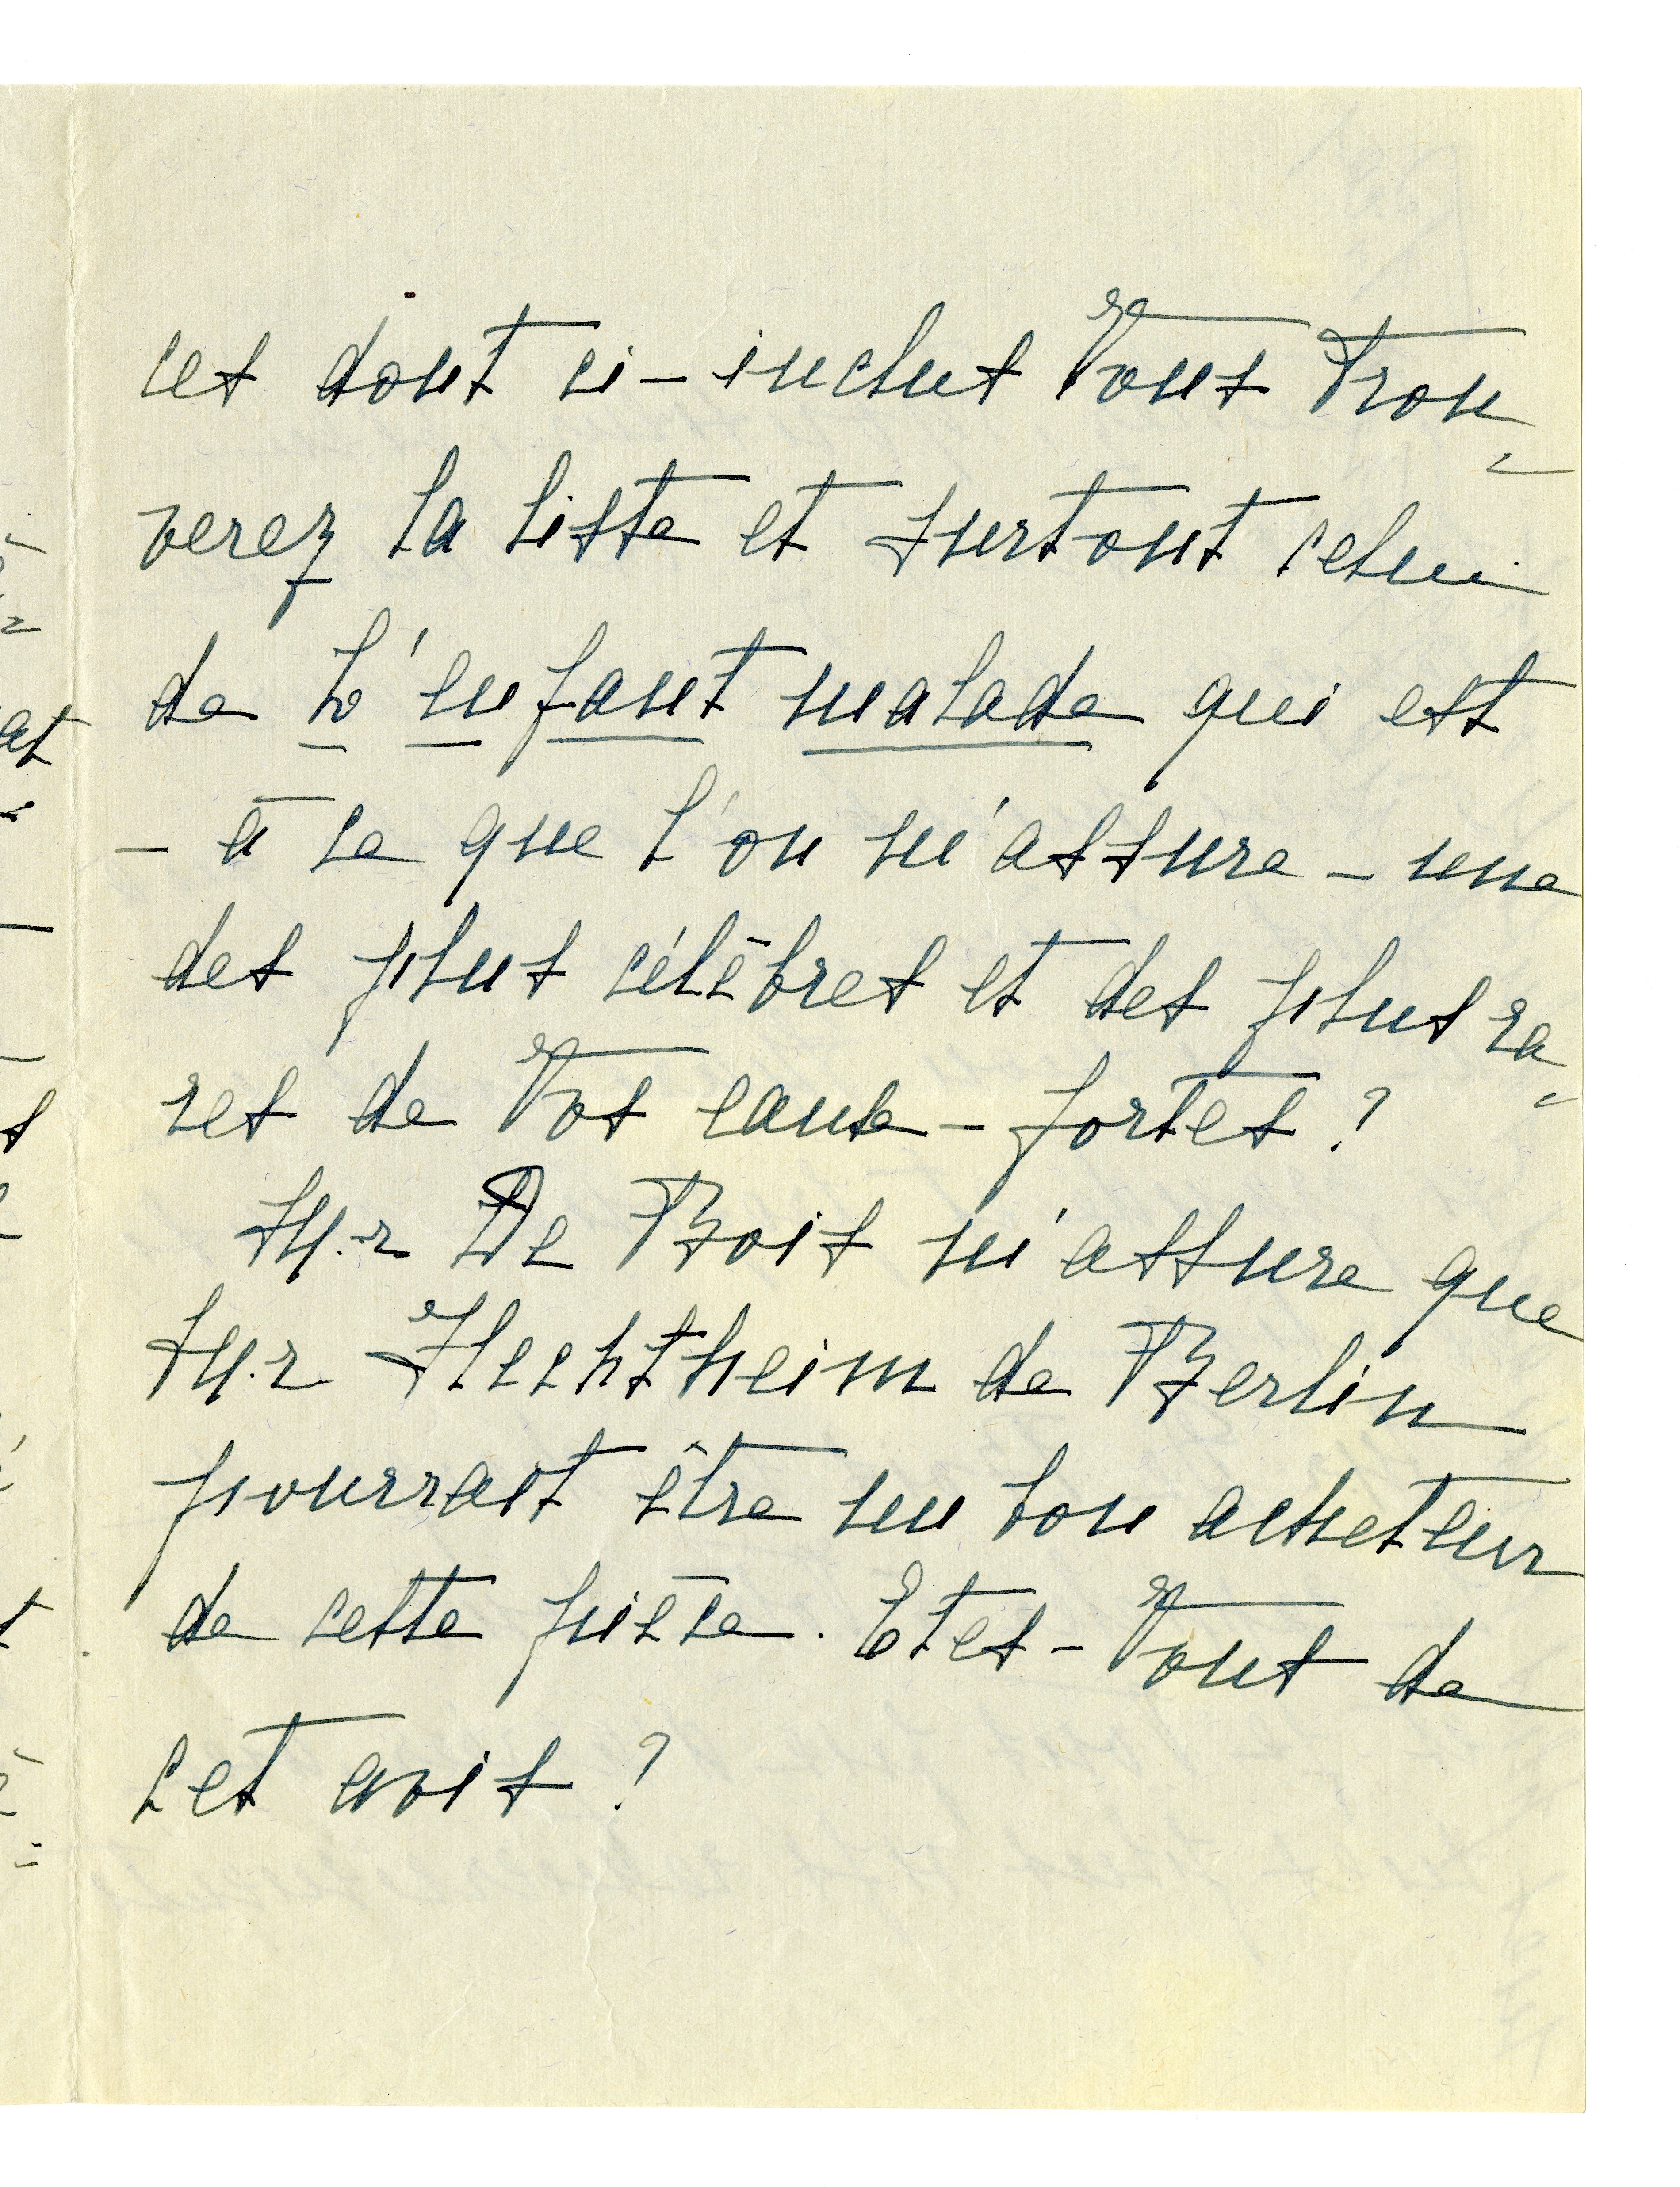 ces dont ci-inclus Vous trou=
verez la liste et surtout celui
de L'enfant malade qui est
- à ce que l'on m'assure - une
des plus célèbres et des plus ra=
res de Vos eaux-fortes?
M.r De Bois m'assure que
M.r Hechtheim de Berlin
pourrait être un bon acheteur
de cette pièce. Etes-Vous de
cet avis?